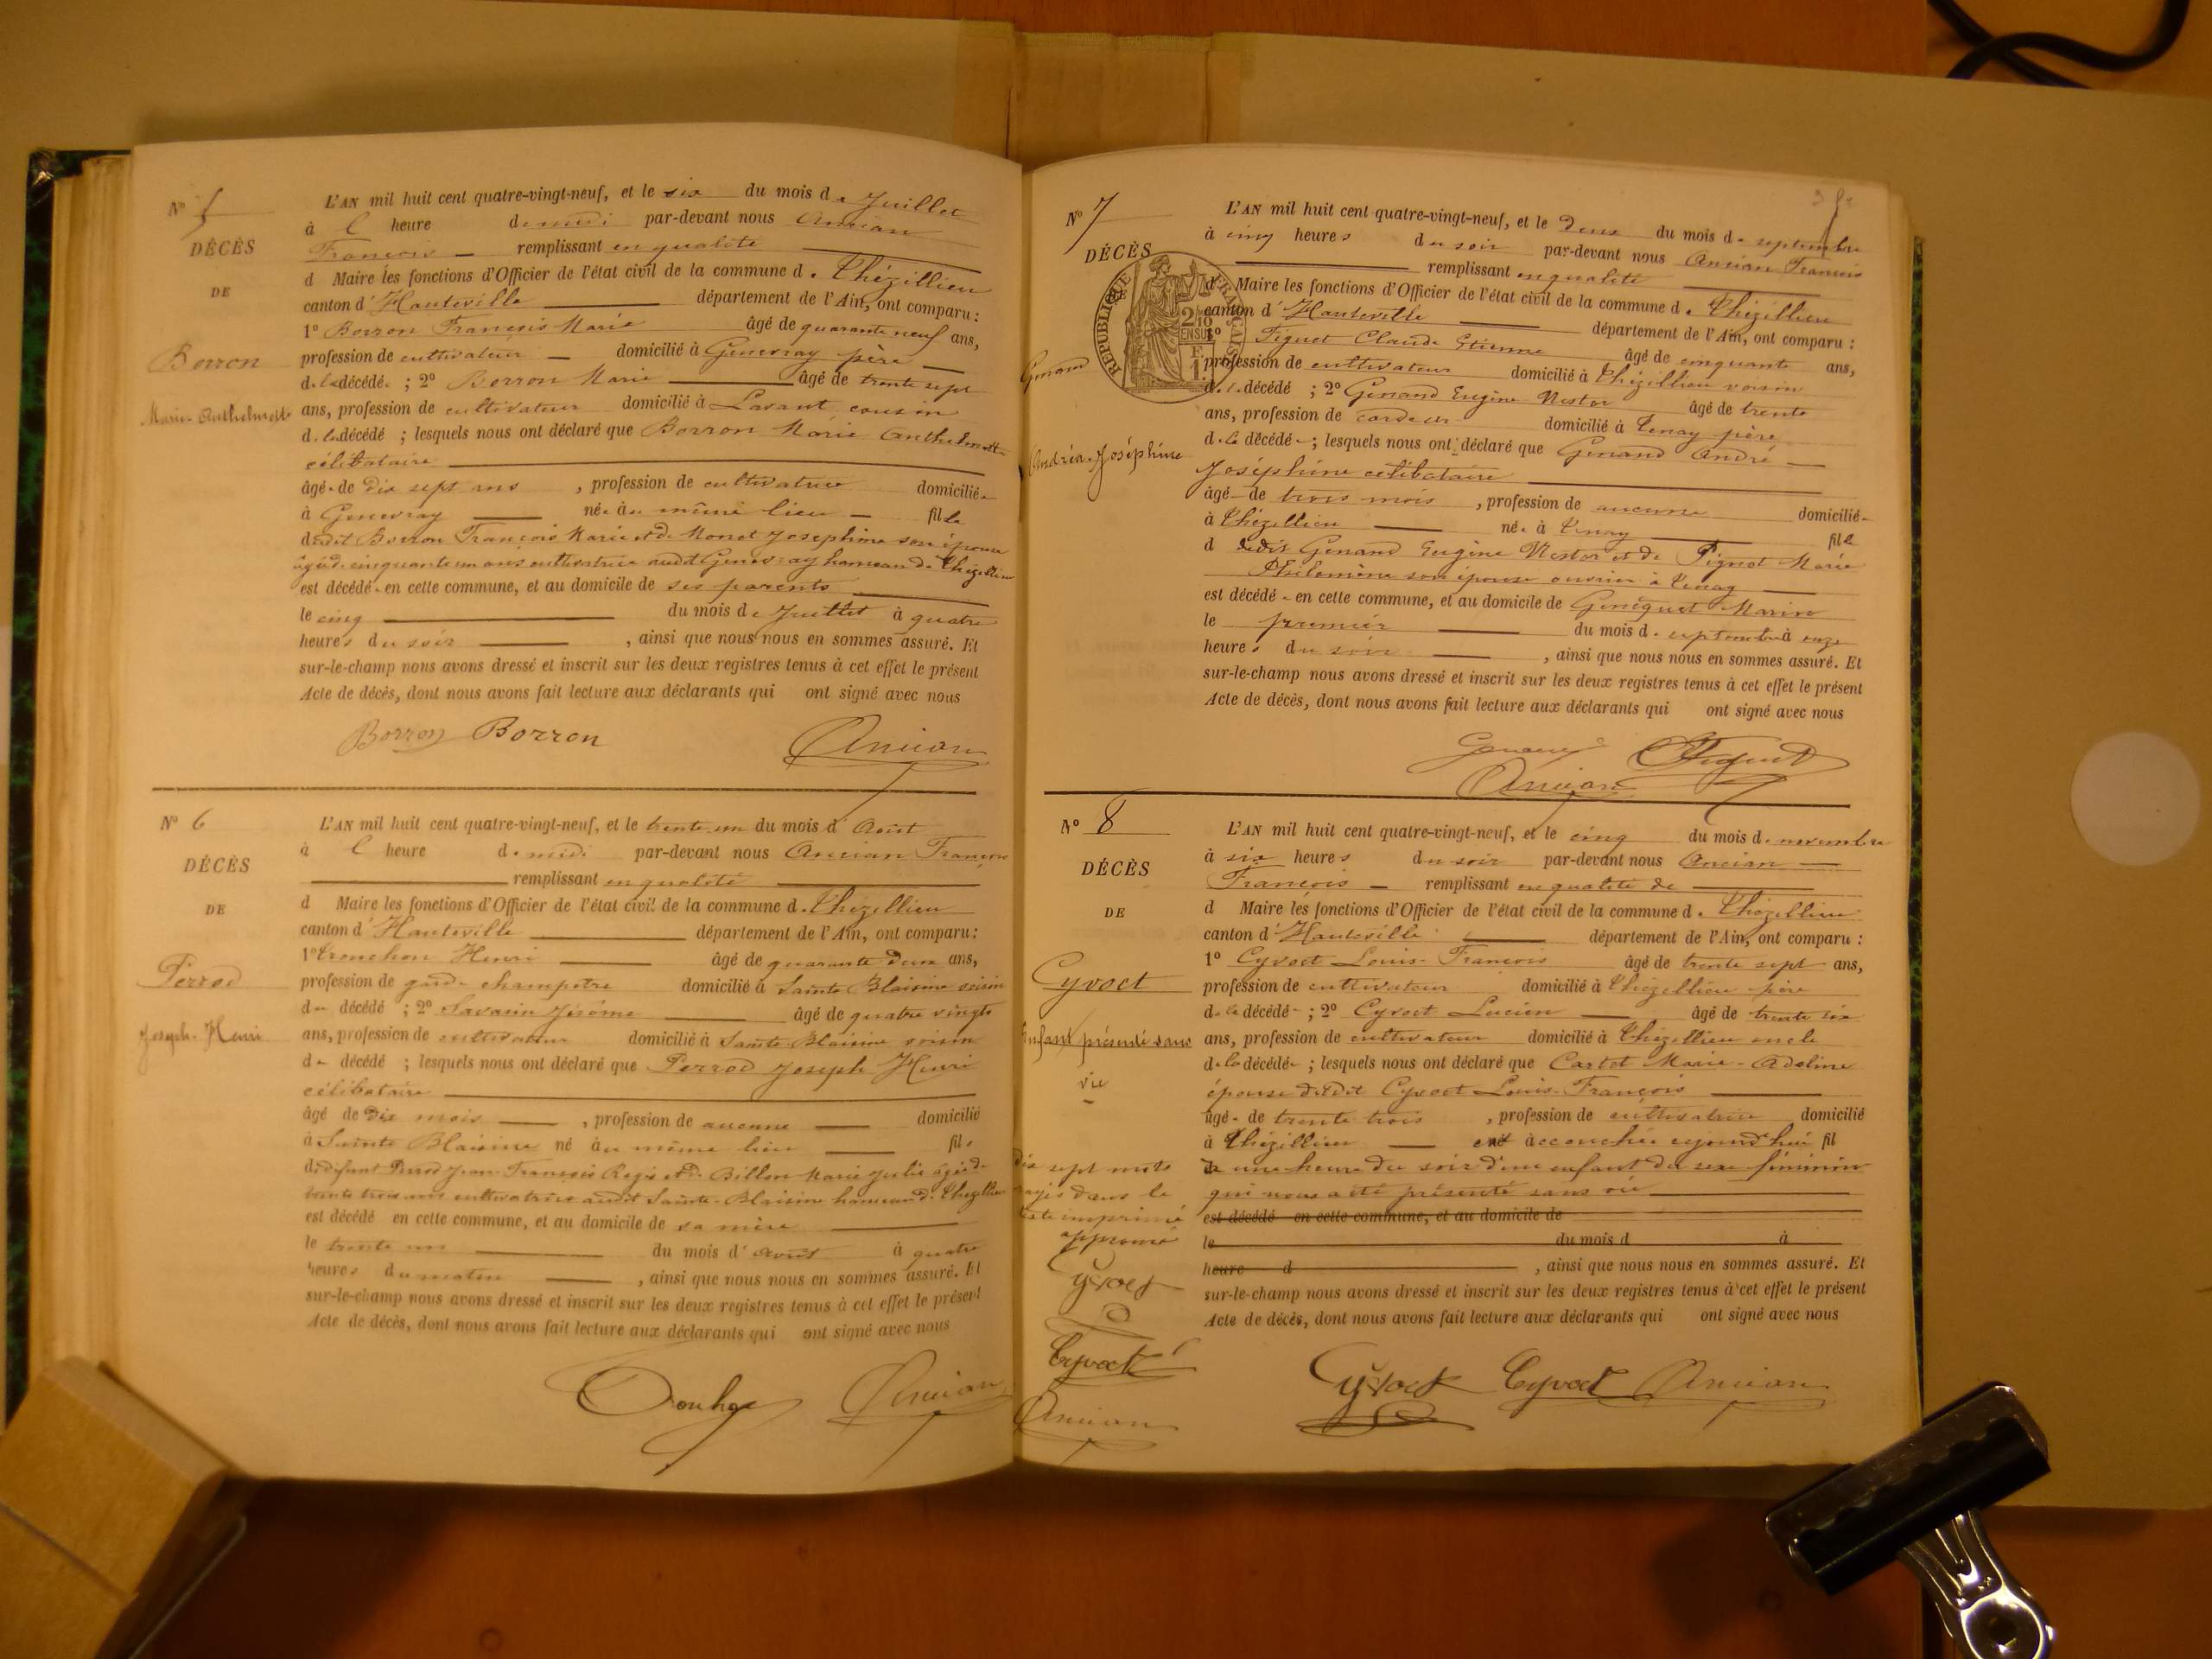 N° 5
DÉCÈS
DE
Borron
Marie-Anthelmette
L'AN mil huit cent quatre-vingt-neuf, et le six du mois de Juillet
à l heure de midi par-devant nous Ancian
François remplissant en qualité
d Maire les fonctions d'Officier de l'état civil de la commune de Thézillieu
canton d'Hauteville département de l'Ain, ont comparu :
1° Borron François Marie âgé de quarante neuf ans,
profession de cultivateur domicilié à Genevray père
de la décédée ; 2° Borron Marie âgé de trente sept
ans, profession de cultivateur domicilié à Lavant cousin
de la décédé ; lesquels nous ont déclaré que Borron Marie Anthelmette
célibataire
âgée de dix sept ans , profession de cultivatrice domiciliée
à Genevray née au même lieu fille
dudit Borron François Marie et de Monet Josephine son épouse
âgée de cinquante un ans cultivatrice audit Genevray hameau de Thézillieu
est décédée en cette commune, et au domicile de ses parents
le cinq du mois de Juillet à quatre
heures du soir , ainsi que nous nous en sommes assuré. Et
sur-le-champ nous avons dressé et inscrit sur les deux registres tenus à cet effet le présent
Acte de décès, dont nous avons fait lecture aux déclarants qui ont signé avec nous
Borron Borron Ancian
N° 6
DÉCÈS
DE
Perrod
Joseph-Henri
L'AN mil huit cent quatre-vingt-neuf, et le trente-un du mois d'Août
à l heure de midi par-devant nous Ancian François
remplissant en qualité
d Maire les fonctions d'Officier de l'état civil de la commune de Thézillieu
canton d'Hauteville département de l'Ain, ont comparu :
1° Tronchon Henri âgé de quarante deux ans,
profession de garde champetre domicilié à Sainte Blaisine voisin
du décédé ; 2° Savarin Jérôme âgé de quatre vingts
ans, profession de cultivateur domicilié à Sainte-Blaisine voisin
du décédé ; lesquels nous ont déclaré que Perrod Joseph Henri
célibataire
âgé de dix mois , profession de aucune domicilié
à Sainte Blaisine né au même lieu fils
de défunt Perrod Jean-François Regis et de Billon Marie Julie âgée de
trente trois ans cultivatrice audit Sainte-Blaisine hameau de Thézillieu
est décédé en cette commune, et au domicile de sa mère
le trente un du mois d'Août à quatre
heures du matin , ainsi que nous nous en sommes assuré. Et
sur-le-champ nous avons dressé et inscrit sur les deux registres tenus à cet effet le présent
Acte de décès, dont nous avons fait lecture aux déclarants qui ont signé avec nous
Ancian
N° 7
DÉCÈS
RÉPUBLIQUE FRANÇAISE
Genand
Andréa-Joséphine
L'AN mil huit cent quatre-vingt-neuf, et le deux du mois de septembre
à cinq heures du soir par-devant nous Ancian François
remplissant en qualité
d Maire les fonctions d'Officier de l'état civil de la commune de Thézillieu
canton d'Hauteville département de l'Ain, ont comparu :
1° Figuet Claude Etienne âgé de cinquante ans,
profession de cultivateur domicilié à Thézillieu voisin
de la décédé ; 2° Genand Eugène Nestor âgé de trente
ans, profession de cardeur domicilié à Tenay père
de la décédée ; lesquels nous ont déclaré que Genand André
Joséphine célibataire
âgé de trois mois , profession de aucune domiciliée
à Thézillieu née à Tenay fille
d dudit Genand Eugène Nestor et de Pignot Marie
Philomène son épouse ouvrier à Tenay
est décédée en cette commune, et au domicile de Marin
le premier du mois de septembre à onze
heures du soir , ainsi que nous nous en sommes assuré. Et
sur-le-champ nous avons dressé et inscrit sur les deux registres tenus à cet effet le présent
Acte de décès, dont nous avons fait lecture aux déclarants qui ont signé avec nous
Genand Figuet
Ancian
N° 8
DÉCÈS
DE
Cyvoct
Enfant présenté sans
vie
dix sept mots
rayés dans le
texte imprimé
approuvé
Cyvoct
Cyvoct
Ancian
L'AN mil huit cent quatre-vingt-neuf, et le cinq du mois de novembre
à six heures du soir par-devant nous Ancian
François remplissant en qualité de
d Maire les fonctions d'Officier de l'état civil de la commune de Thézillieu
canton d'Hauteville département de l'Ain, ont comparu :
1° Cyvoct Louis-François âgé de trente sept ans,
profession de cultivateur domicilié à Thézillieu père
de la décédée ; 2° Cyvoct Lucien âgé de trente six
ans, profession de cultivateur domicilié à Thézillieu oncle
de la décédée ; lesquels nous ont déclaré que Cartet Marie-Adeline
épouse dudit Cyvoct Louis-François
âgée de trente trois , profession de cultivatrice domicilié
à Thézillieu est accouchée aujourd'hui fil
à une heure du soir d'une enfant du sexe féminin
qui nous a été présenté sans vie
est décédé en cette commune, et au domicile de
le du mois d à
heure d , ainsi que nous nous en sommes assuré. Et
sur-le-champ nous avons dressé et inscrit sur les deux registres tenus à cet effet le présent
Acte de décès, dont nous avons fait lecture aux déclarants qui ont signé avec nous
Cyvoct Cyvoct Ancian